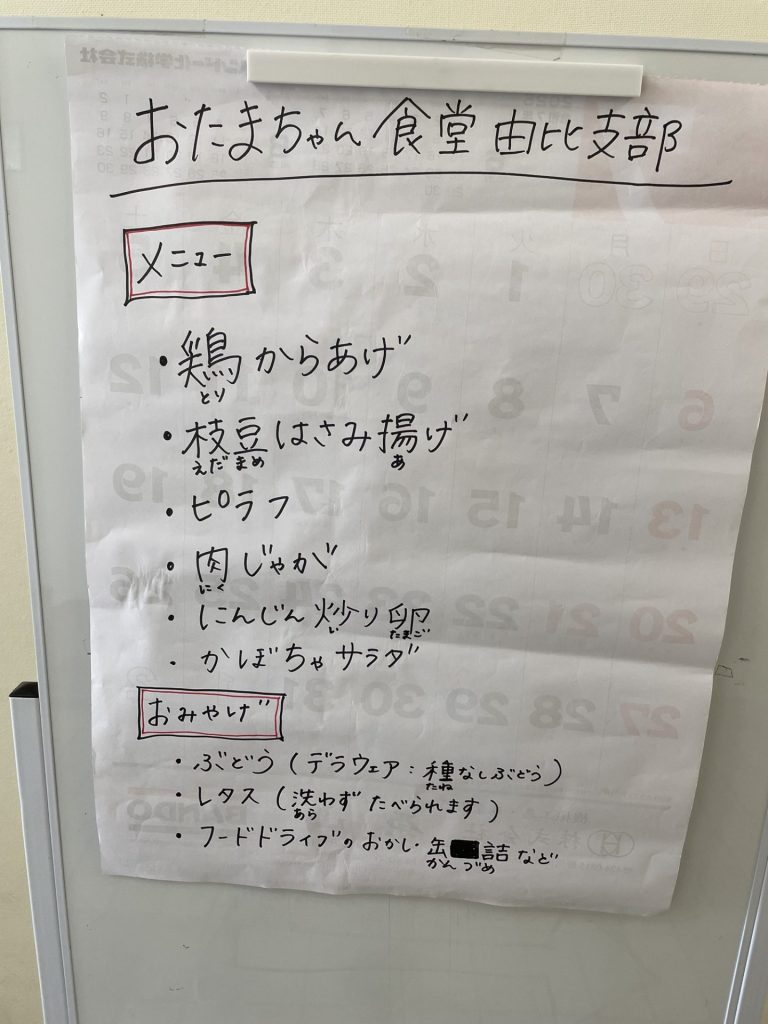 おたまちゃん食堂 由比支部
メニュー
・鶏からあげ
とり
・枝豆はさみ揚げ
えだまめ あ
・ピラフ
・肉じゃが
にく
・にんじん炒り卵
い たまご
・かぼちゃサラダ
おみやげ
・ぶどう(デラウェア:種なしぶどう)
たね
・レタス(洗わずたべられます)
あら
・フードドライブのおかし・缶詰など
かんづめ